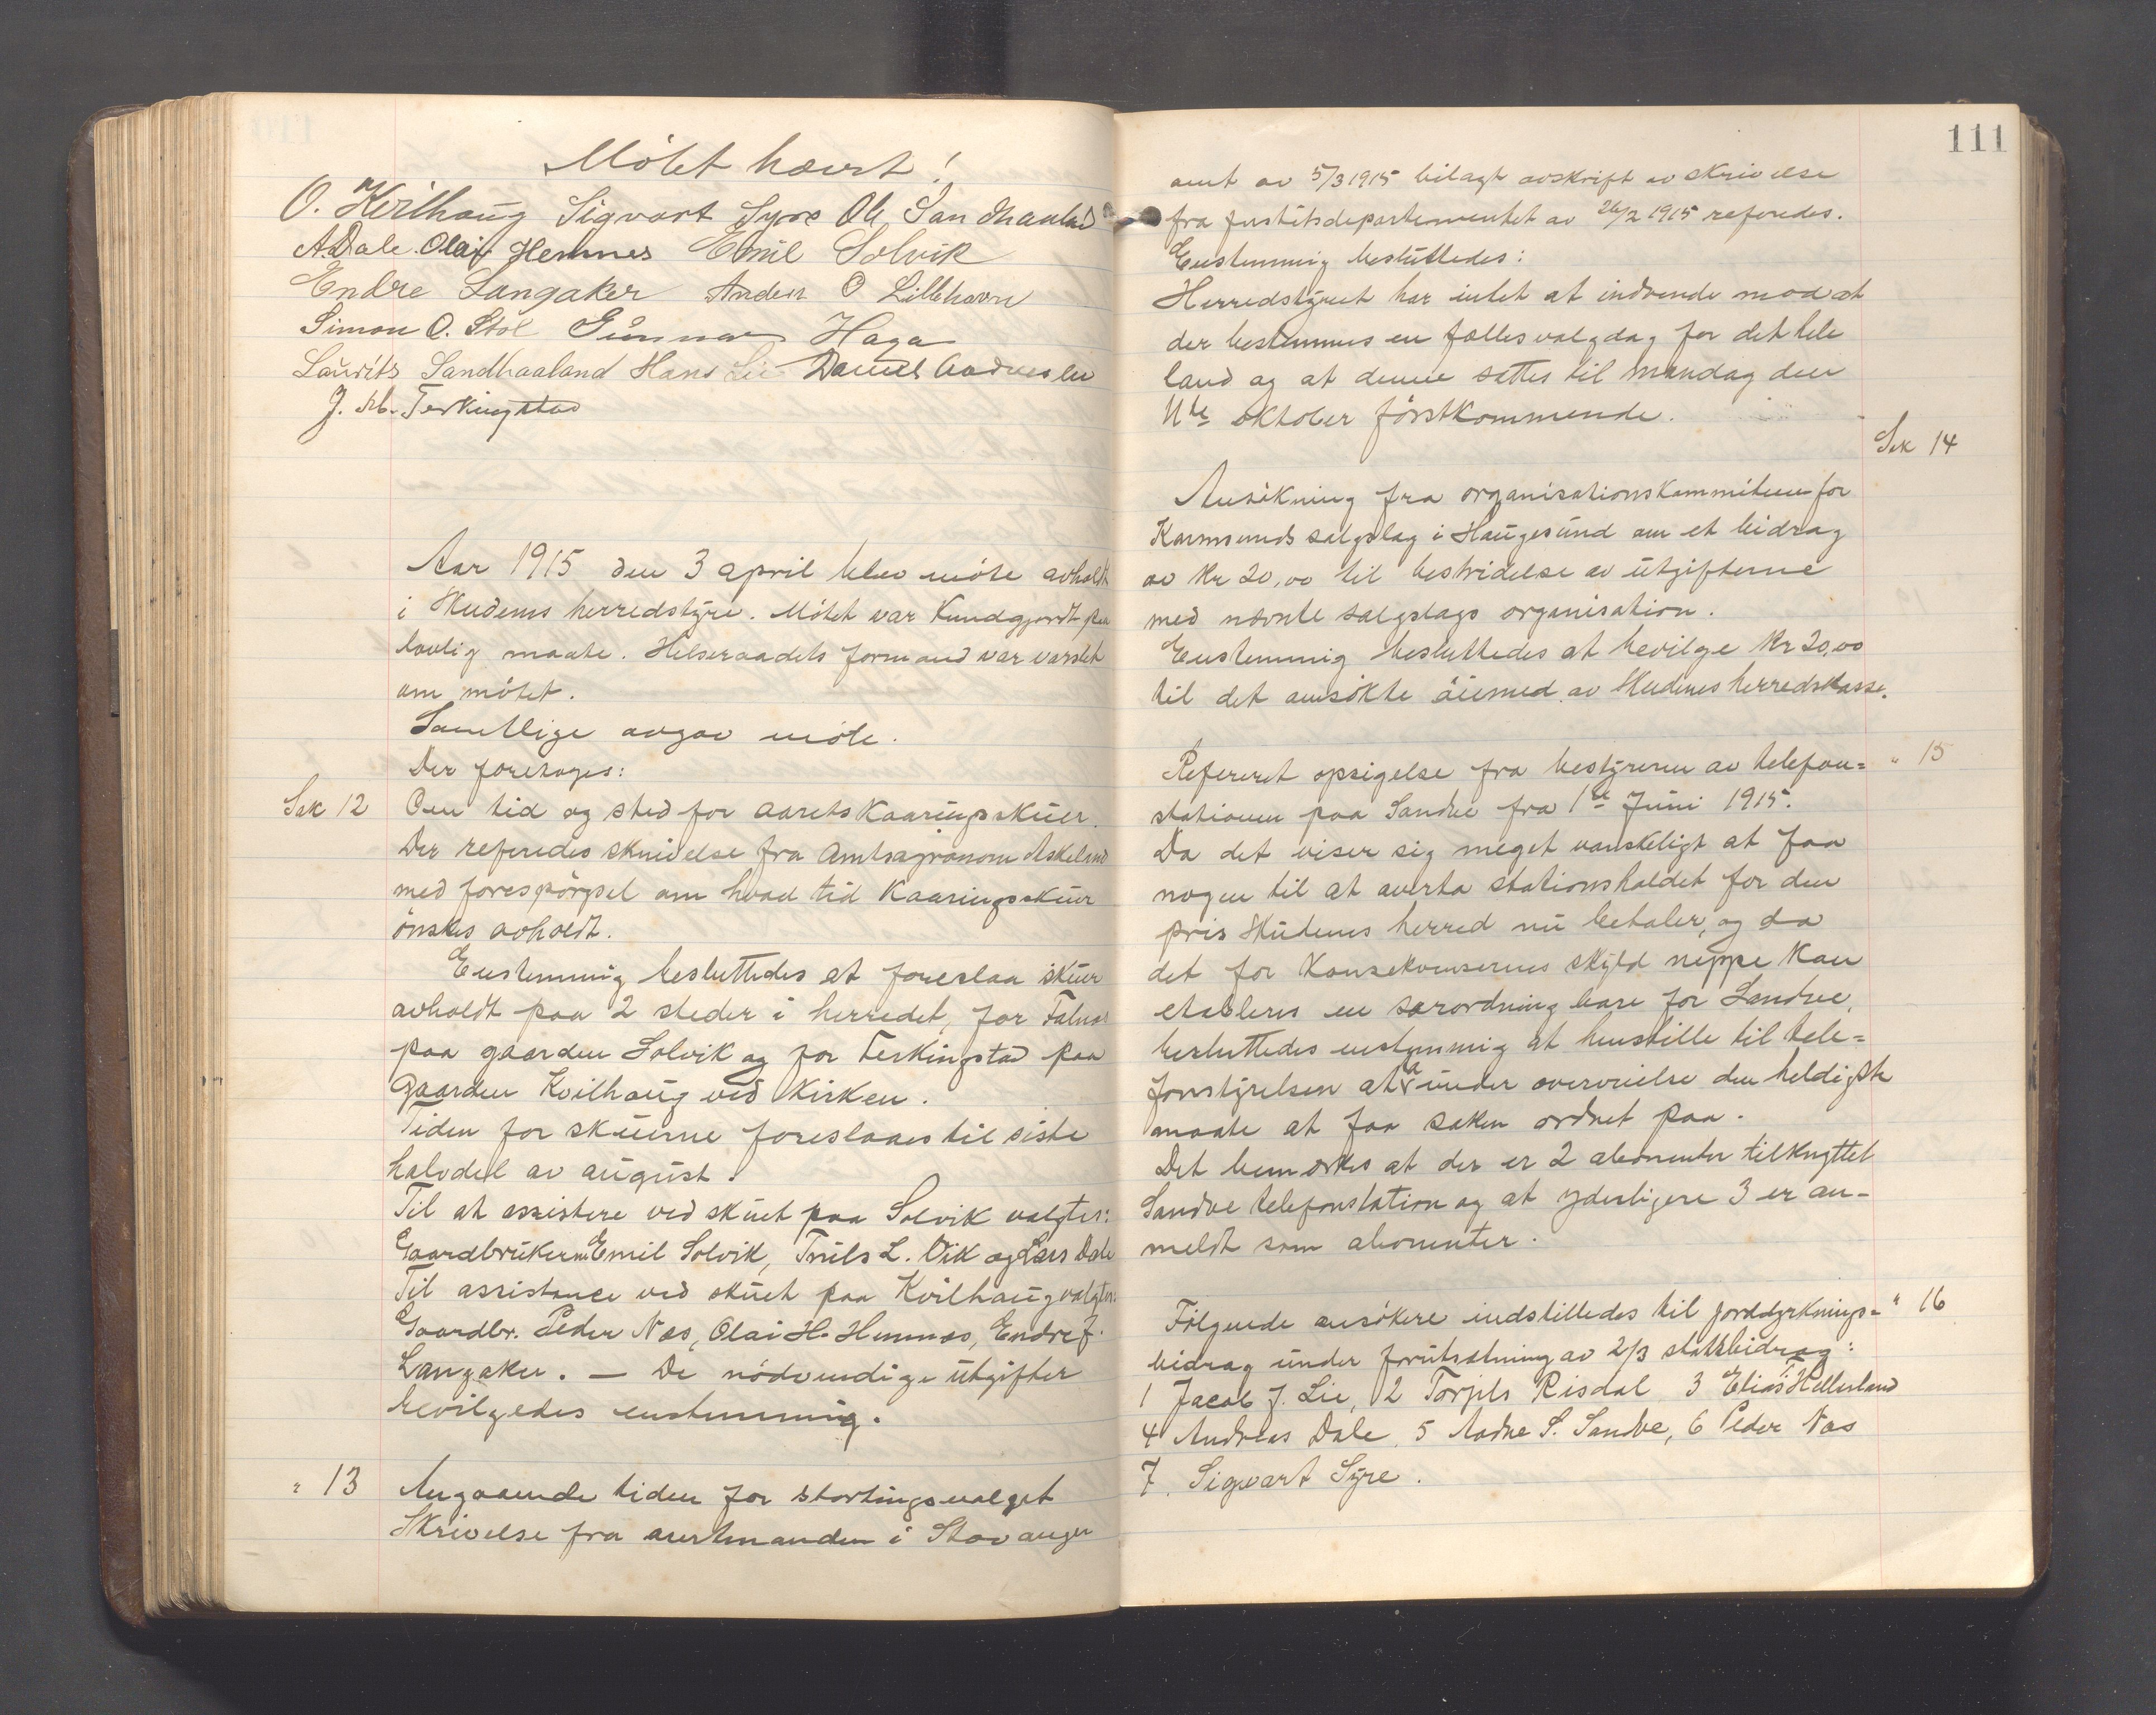 Mötet hævet!
O. Kvilhaug Sigvart Syre Ole Sandhaaland
A. Dale Olai H Hemnes Emil Solvik
Endre Langaker Anders O Lillehavn
Simon O. Stol Gunnar Haga
Laurits Sandhaaland Hans Lie Daniel Aadnesen
J. M. Ferkingstad
Aar 1915 den 3 april blev möte avholdt
i Skudenes herredstyre. Mötet var kundgjordt paa
lovlig maate. Helseraadets formand var varslet
om mötet.
Samtllige avgav möte.
Der foretoges:
Sak 12 Om tid og sted for aarets kaaringsskuer.
Der referedes skrivelse fra Amtsagronom Askeland
med forespörgsel om hvad tid kaaringsskuer
önskes avholdt.
Enstemmig besluttedes at foreslaa skuer
avholdt paa 2 steder i herredet, for Falnes
paa gaarden Solvik og for Ferkingstad paa
gaarden Kvilhaug ved kirken.
Tiden for skuerne foreslaaes til siste
halvdel av august.
Til at assistere ved skuet paa Solvik valgtes:
Gaardbrukerne Emil Solvik, Truls L. Vik og Lars Dale
Til assistance ved skuet paa Kvilhaug valgtes:
Gaardbr. Peder Næs, Olai H. Hemnes, Endre J.
Langaker. — De nödvendige utgifter
bevilgedes enstemmig.
" 13 Angaaende tiden for stortingsvalget
Skrivelse fra amtmanden i Stavanger
111
amt av 5/3 1915 bilagt avskrift av skrivelse
fra justitsdepartementet av 26/2 1915 referedes.
Enstemmig besluttedes:
Herredstyret har intet at indvende mod at
der bestemmes en fælles valgdag for det hele
land og at denne settes til mandag den
11te oktober förstkommende.
Sak 14
Ansökning fra organisationskommiteen for
Karmsunds salgslag i Haugesund om et bidrag
av kr 20,00 til bestridelse av utgifterne
med nævnte salgslags organisation.
Enstemmig besluttedes at bevilge kr 20,00
til det ansökte öiemed av Skudenes herredskasse.
Refereret opsigelse fra bestyreren av telefon= " 15
stationen paa Sandve fra 1ste Juni 1915.
Da det viser sig meget vanskeligt at faa
nogen til at overta stationsholdet for den
pris Skudenes herred nu betaler, og da
det for konsekvensernes skyld neppe kan
etableres en særordning bare for Sandve,
besluttedes enstemmig at henstille til tele=
fonstyrelsen at ta under overveielse den heldigste
maate at faa saken ordnet paa.
Det bemerkes at der er 2 abonenter tilknyttet
Sandve telefonstation og at yderligere 3 er an-
meldt som abonenter.
Fölgende ansökere indstilledes til jorddyrknings= " 16
bidrag under forutsætning av 2/3 statsbidrag:
1 Jacob J. Lie, 2 Torjils Risdal 3 Elias T. Hellesland
4 Andreas Dale, 5 Aadne S. Sandve, 6 Peder Næs
7. Sigvart Syre.